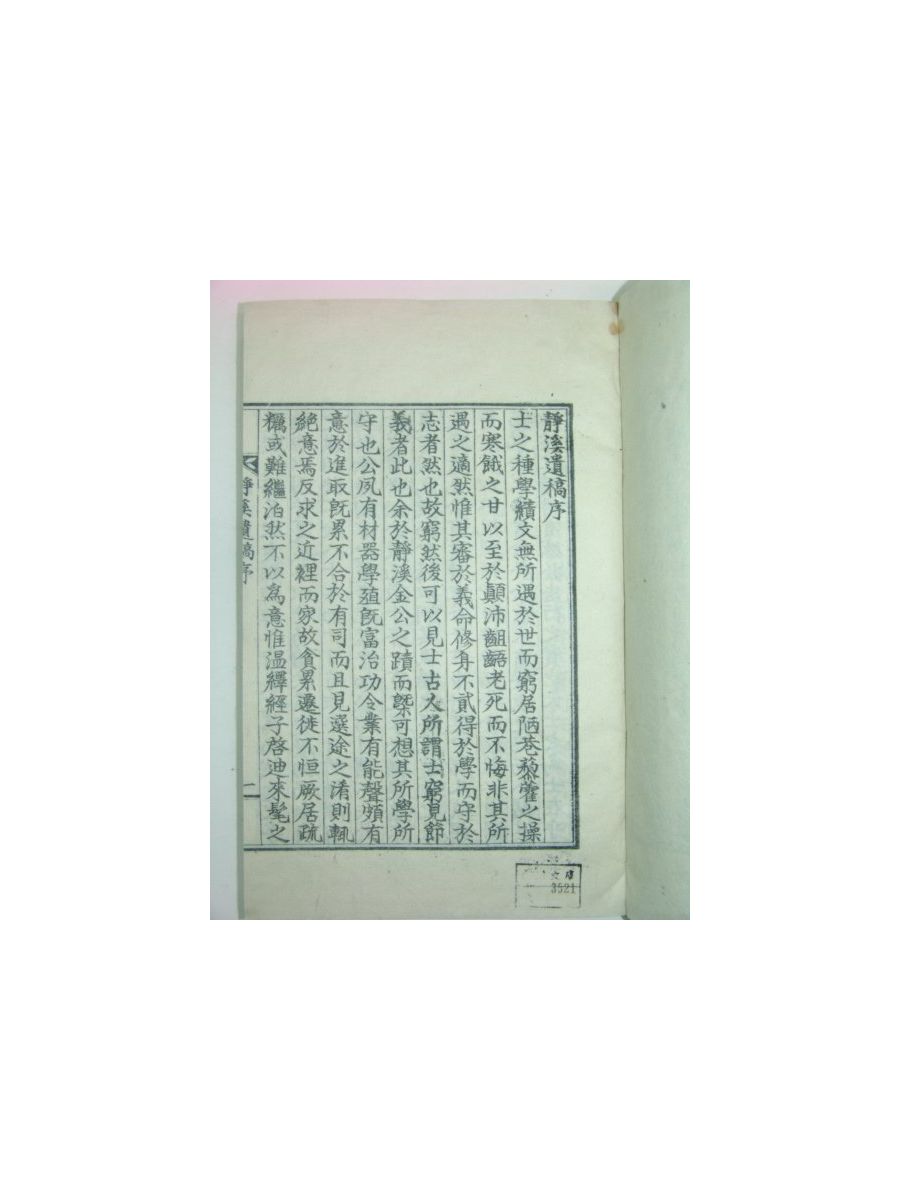 靜溪遺稿序
士之種學績文無所遇於世而窮居陋巷藜藿之操
而寒餓之甘以至於顚沛齟齬老死而不悔非其所
遇之適然惟其審於義命修身不貳得於學而守於
志者然也故窮然後可以見士古人所謂士窮見節
義者此也余於靜溪金公之蹟而槩可想其所學所
守也公夙有材器學殖旣富治功令業有能聲頗有
意於進取旣累不合於有司而且見選途之淆則輒
絶意焉反求之近裡而家故貪累遷徙不恒厥居疏
糲或難繼泊然不以爲意惟温繹經子啓迪來髦之
靜溪遺稿序
一
3521